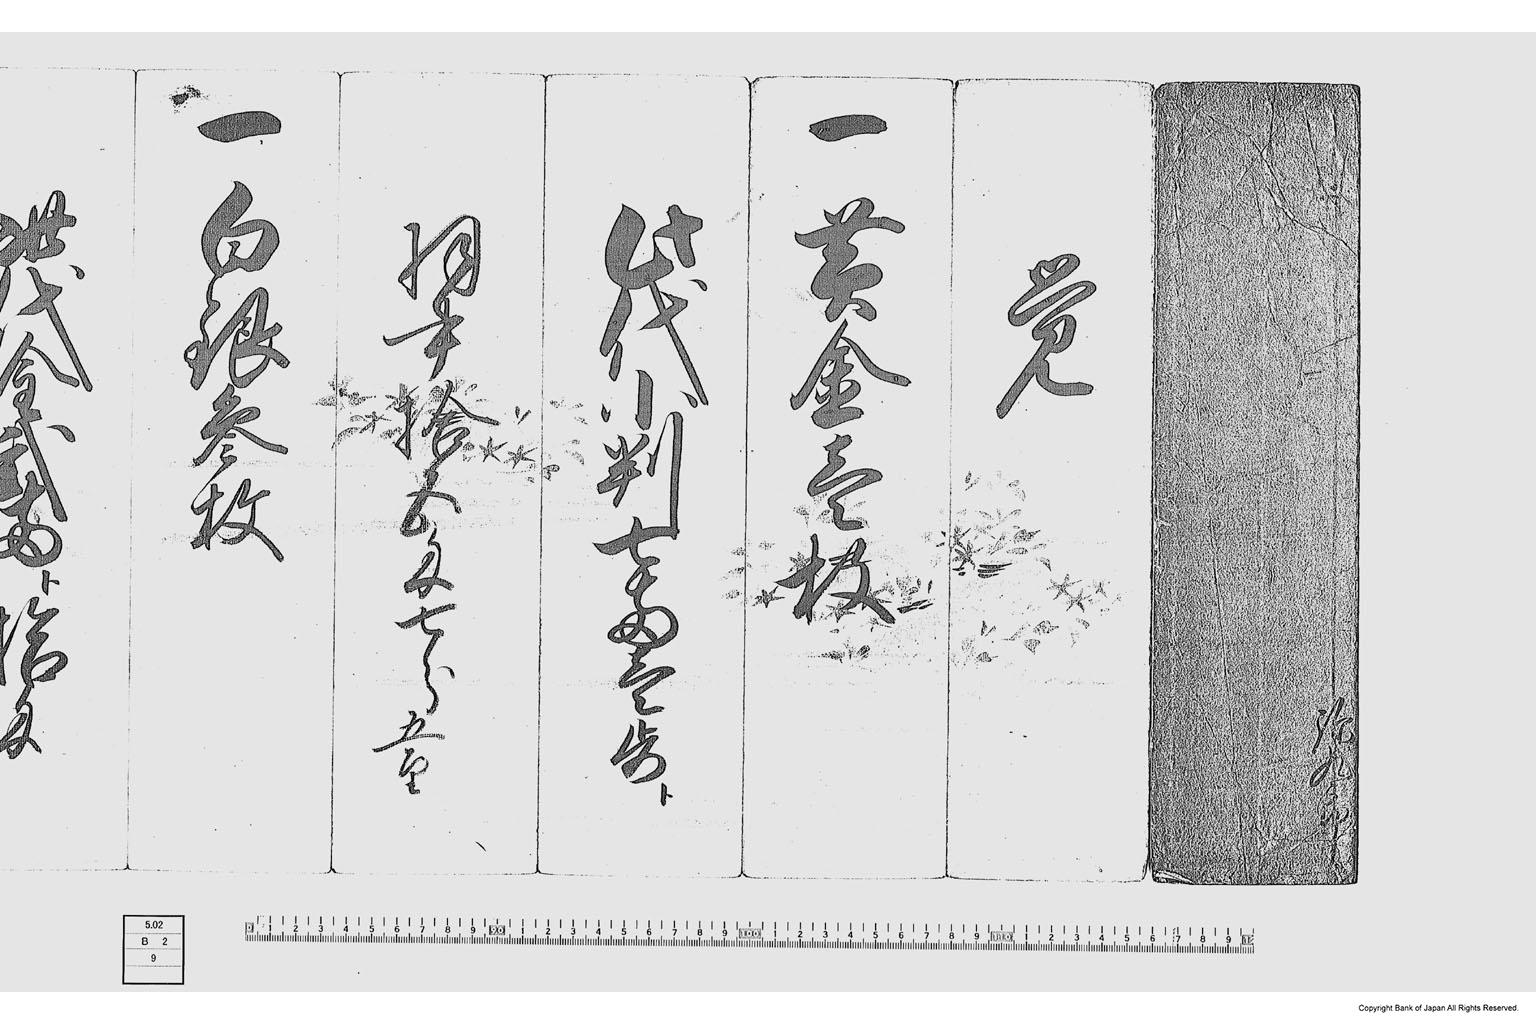 覚
一 黄金壱枚
代小判七両壱歩ト
拾五匁七分五重
一 白銀参枚
代金弐両ト拾匁
5.02
B 2
9
Copyright Bank of Japan All Rights Reserved.